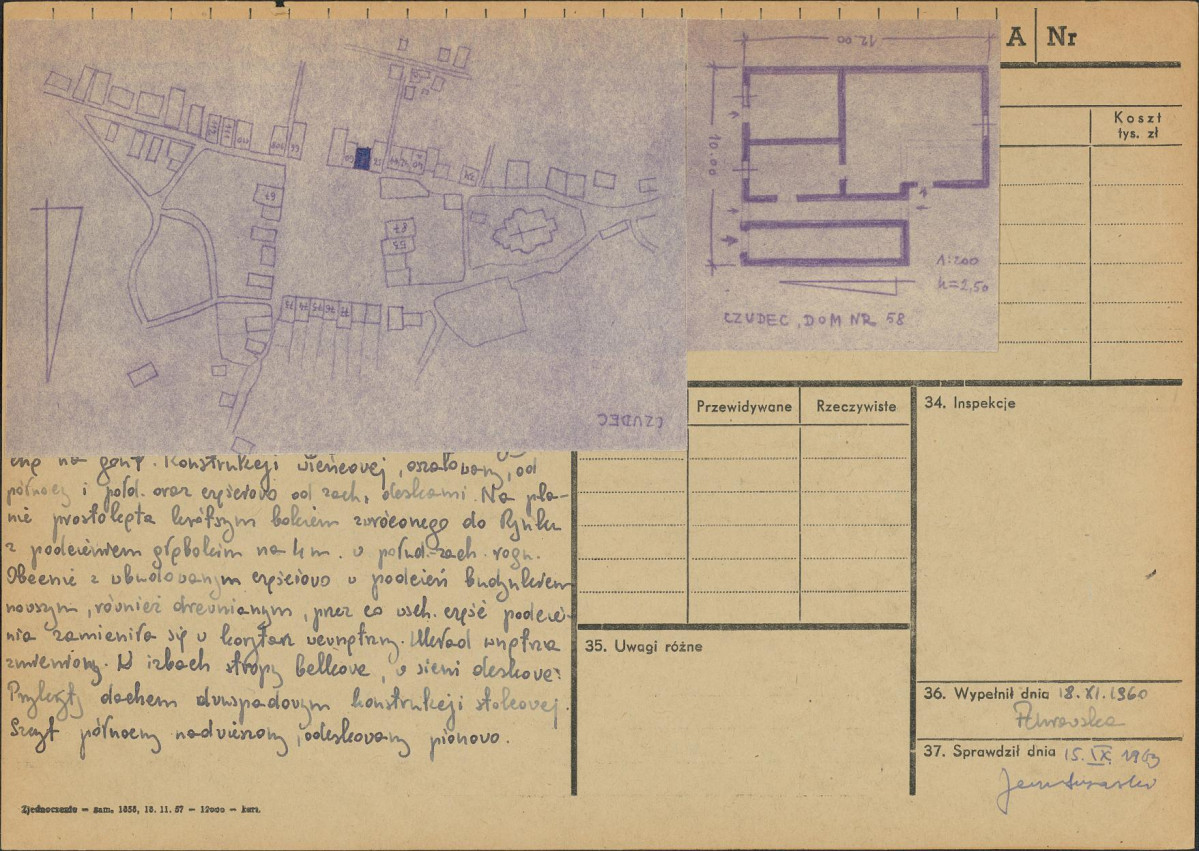 A Nr
Koszt
tys. zł
12.00
10.00
1:200
h=2,50
CZUDEC, DOM NR 58
CZUDEC
112
111
110
67
87
53
73
74
75
76
77
Przewidywane
Rzeczywiste
34. Inspekcje
na gont. Konstrukcji wieńcowej, oszalowany, od
północy i połd. oraz częściowo od zach. deskami. Na pla-
nie prostokąta krótszym bokiem zwróconego do Rynku
z podcieniem głębokim na 4 m. w połud.-zach. rogu.
Obecnie z wbudowanym częściowo w podcień budynkiem
nowszym, również drewnianym, przez co wsch. część podcie-
nia zamieniła się w korytarz wewnętrzny. Układ wnętrza
zmieniony. W izbach stropy belkowe, w sieni deskowe.
Przykryty dachem dwuspadowym konstrukcji stolcowej.
Szczyt północny nadwieszony, odeskowany pionowo.
35. Uwagi różne
36. Wypełnił dnia 18.XI.1960
37. Sprawdził dnia 15.IX.1963
Zjednoczenie — zam. 1658, 18. 11. 57 — 12000 — kart.